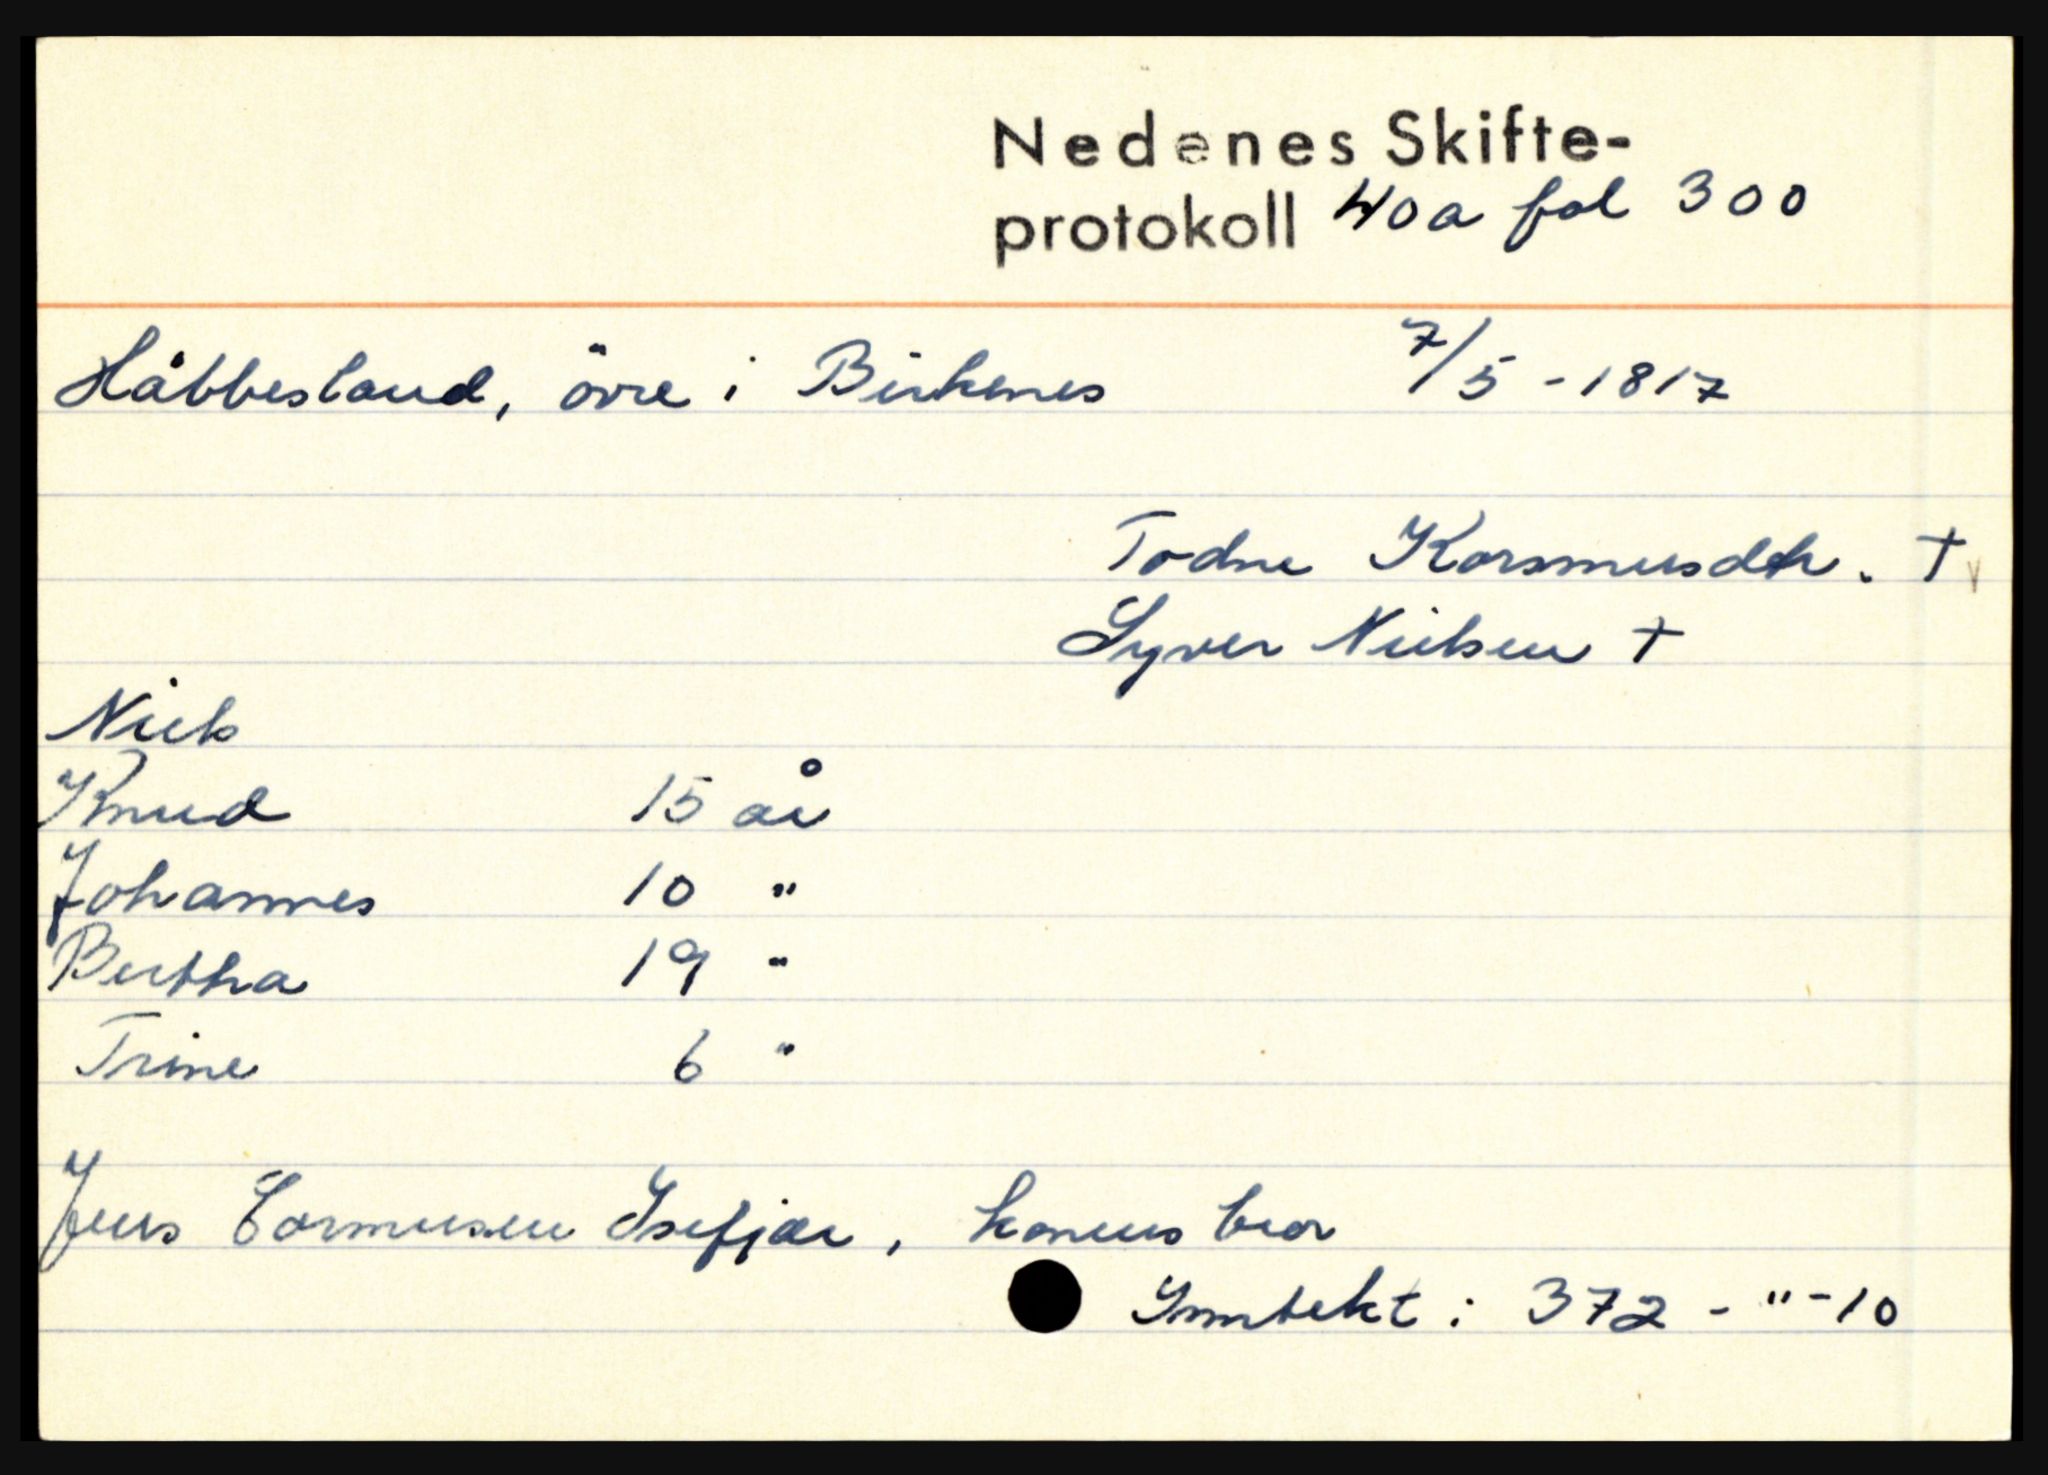 Nedenes Skifte-
protokoll 40a fol 300
Håbbesland, övre i Birkenes 7/5 - 1817
Todne Korsmusdtr. †
Syver Nielsen †
Niels
Knud 15 år
Johannes 10 "
Bertha 19 "
Trine 6 "
Jens Cormusen Isefjær, konens bror
Inntekt : 372 - " - 10